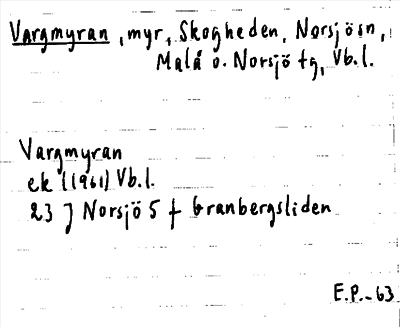 Vargmyran, myr, Skogheden, Norsjö sn,
Malå o. Norsjö tg, Vb.l.
Vargmyran
ek (1961) Vb.l.
23 J Norsjö 5 f Granbergsliden
E.P.-63